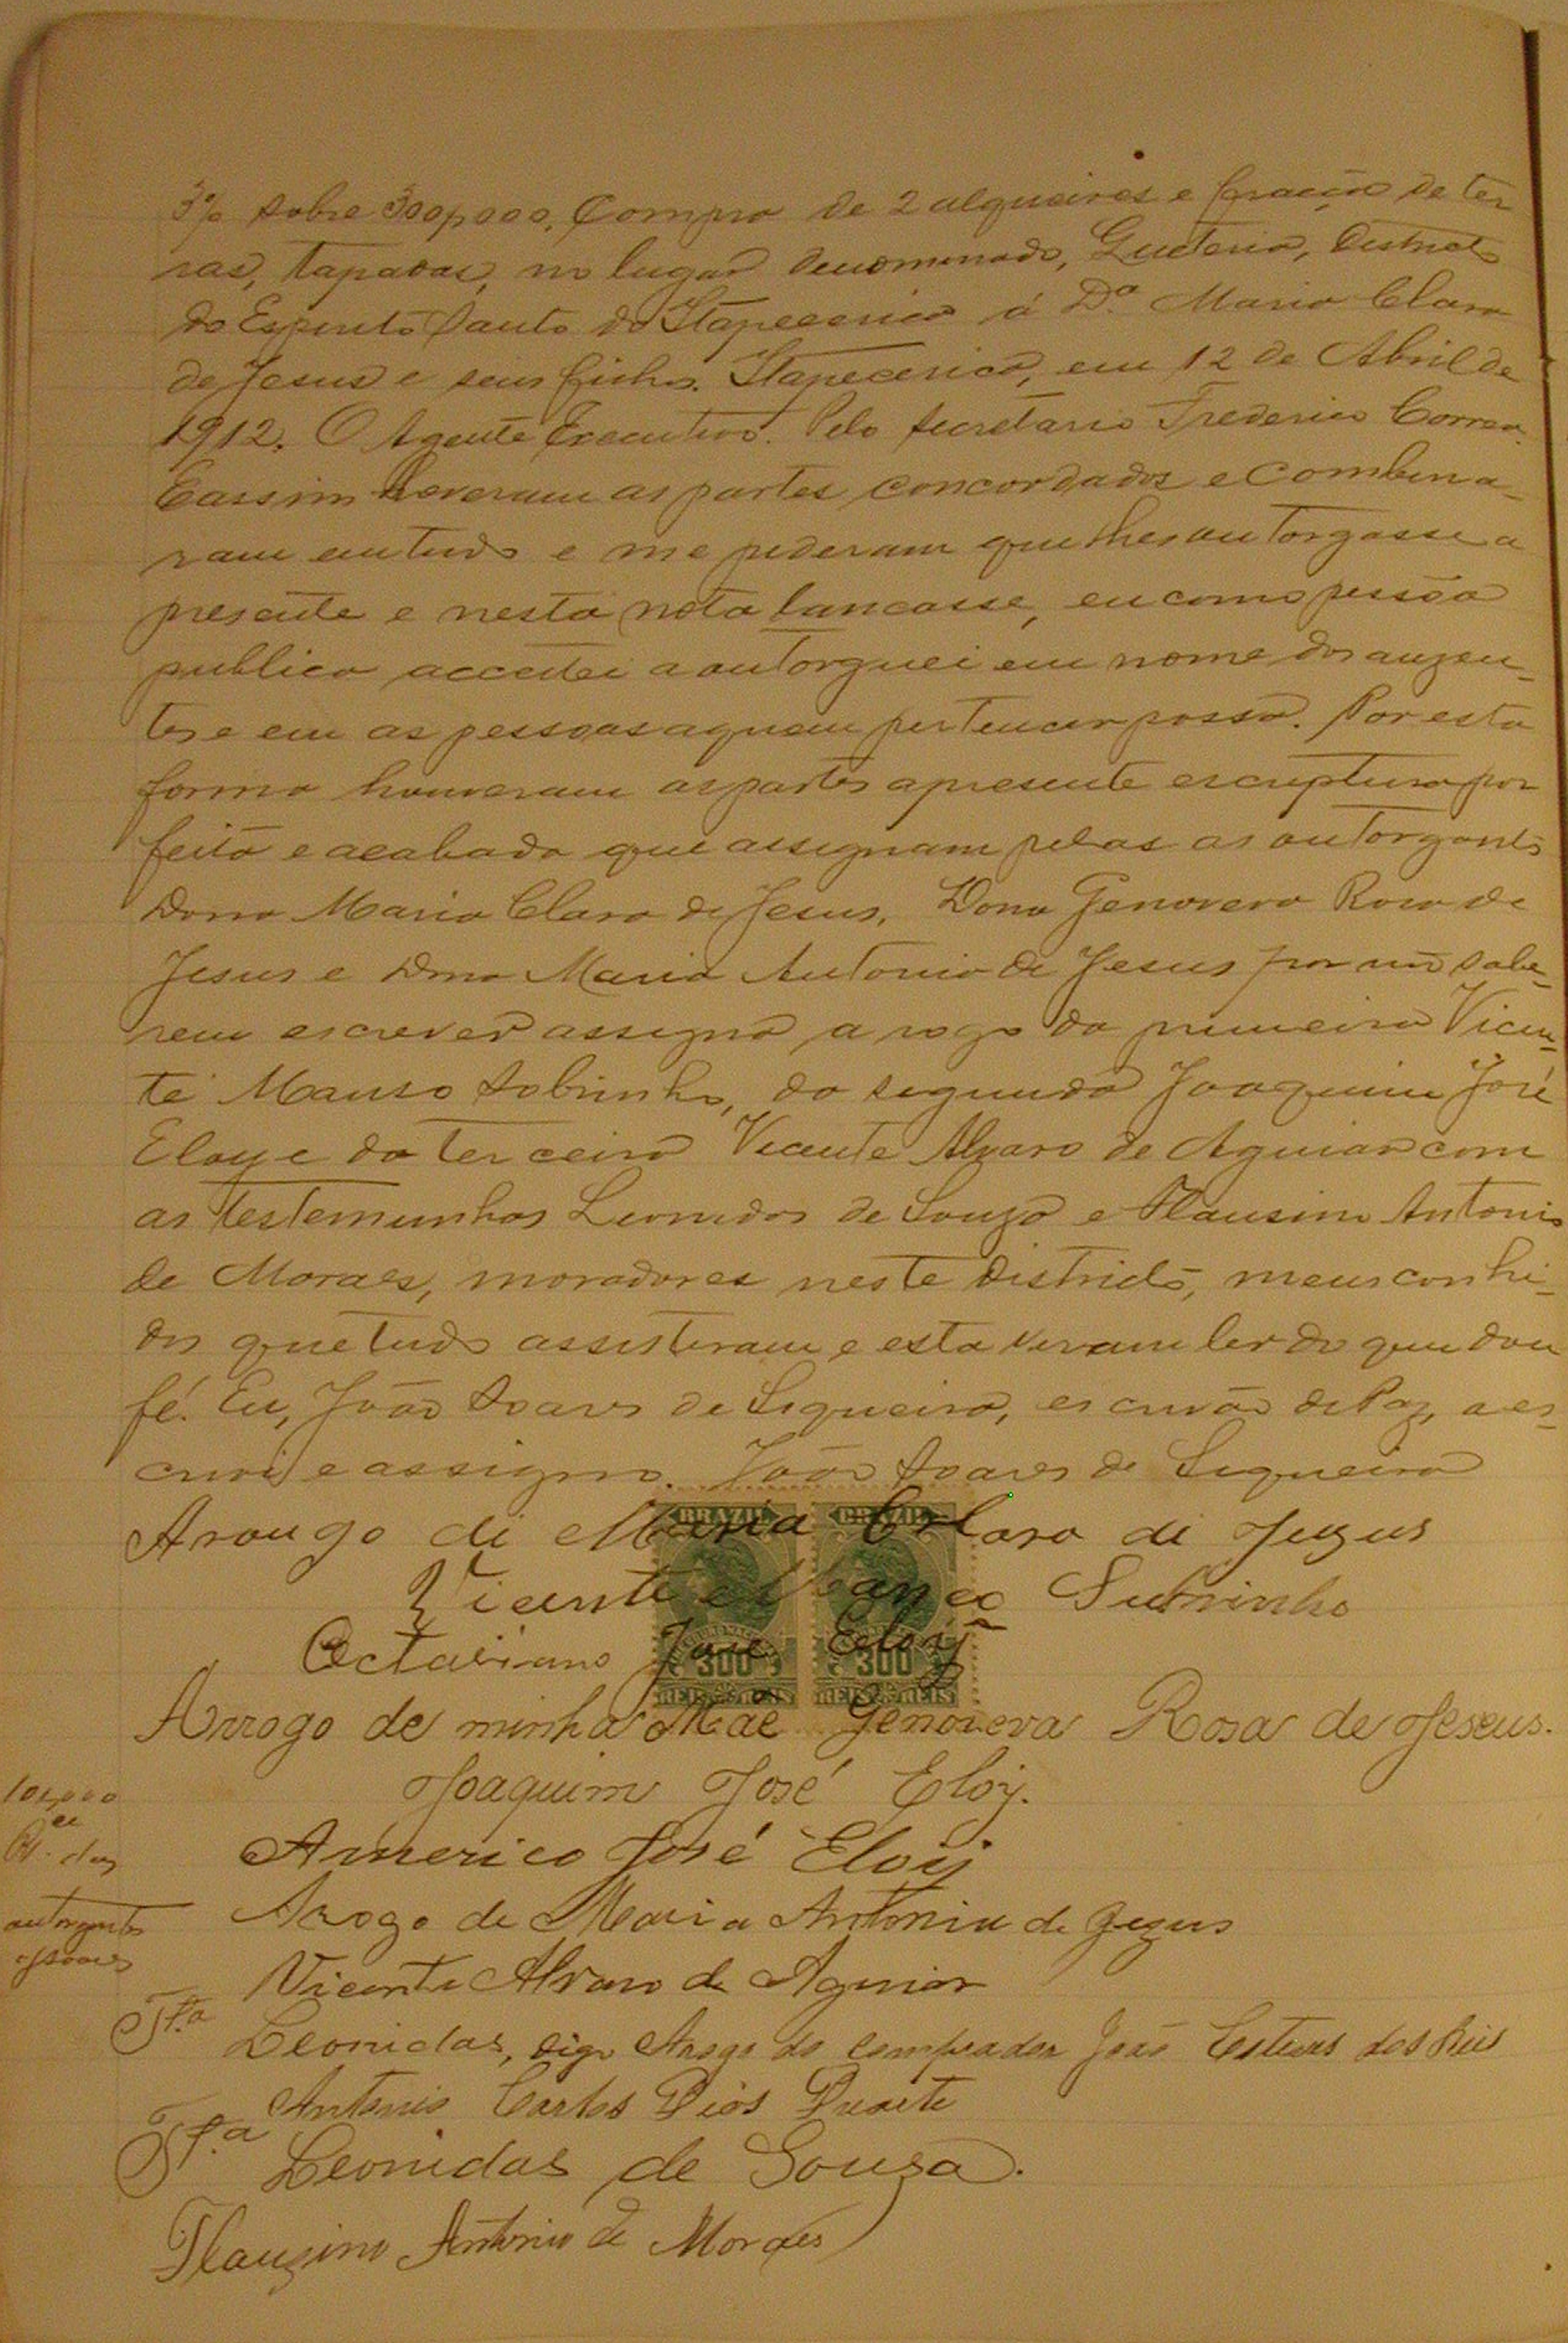 3% sobre 300$000, Compra de 2 alqueires e fração de ter
ras, tapadas, no lugar denominado, districto
do Espirito Santo do Itapecerica á D.ª Maria Clara
de Jesus e seus filhos. Itapecerica, em 12 de Abril de
1912. O Agente Executivo. Pelo secretario Frederico Correa.
E assim houveram as partes concordados e combina-
ram em tudo e me pederam que lhes outorgasse a
presente e nesta nota lancasse, eu como pessôa
publica acceitei a outorguei em nome dos auzen-
tes e em as pessoas a quem pertencer possa. Por esta
forma houveram as partes a presente escriptura por
feita e acabada que assignam pelas as outorgantes
Dona Maria Clara de Jesus, Dona Genoveva Rosa de
Jesus e Dona Maria Antonia de Jesus por não sabe-
rem escrever assigna a rogo da primeira Vicen-
te Manso Sobrinho, da segunda Joaquim José
Eloy e da terceira Vicente Alvaro de Aguiar com
as testemunhas Leonidas de Souza e Flausino Antonio
de Moraes, moradores neste districto, meus conhi-
dos que tudo assisteram e estaveram ler do que dou
fé. Eu, João Soares de Siqueira, escrivão de Paz, a es-
crevi e assigno. João Soares de Siqueira
Arougo di Maria Clara di Jezus
Vicente Subrinho
BRAZIL BRAZIL
Octaviano José Eloÿ
300 300
REIS REIS REIS REIS
Arrogo de minha Mãe Genoveva Rosa de Jeseus.
Joaquim José Eloy.
Americo José Eloÿ
Arogo de Maria Antonia de Jezus
Vicente Alvaro de Aguiar
outorgantes
T.ª Leonidas, digo Arogo do comprador João Esteves dos Reis
Antonio Carlos Dias Duarte
T.ª Leonidas de Sousa.
Flauzino Antonio de Moraes